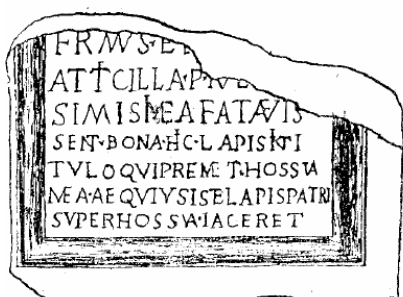 FRMVS·E
ATTCILLA·P
SIMISMEAFATAVIS
SENT·BONA·HIC·LAPISETTI
TVLOQVIPREMET·HOSSVA
MEA·AEQVIVSISELAPISPATRI
SVPERHOSSVA·IACERET